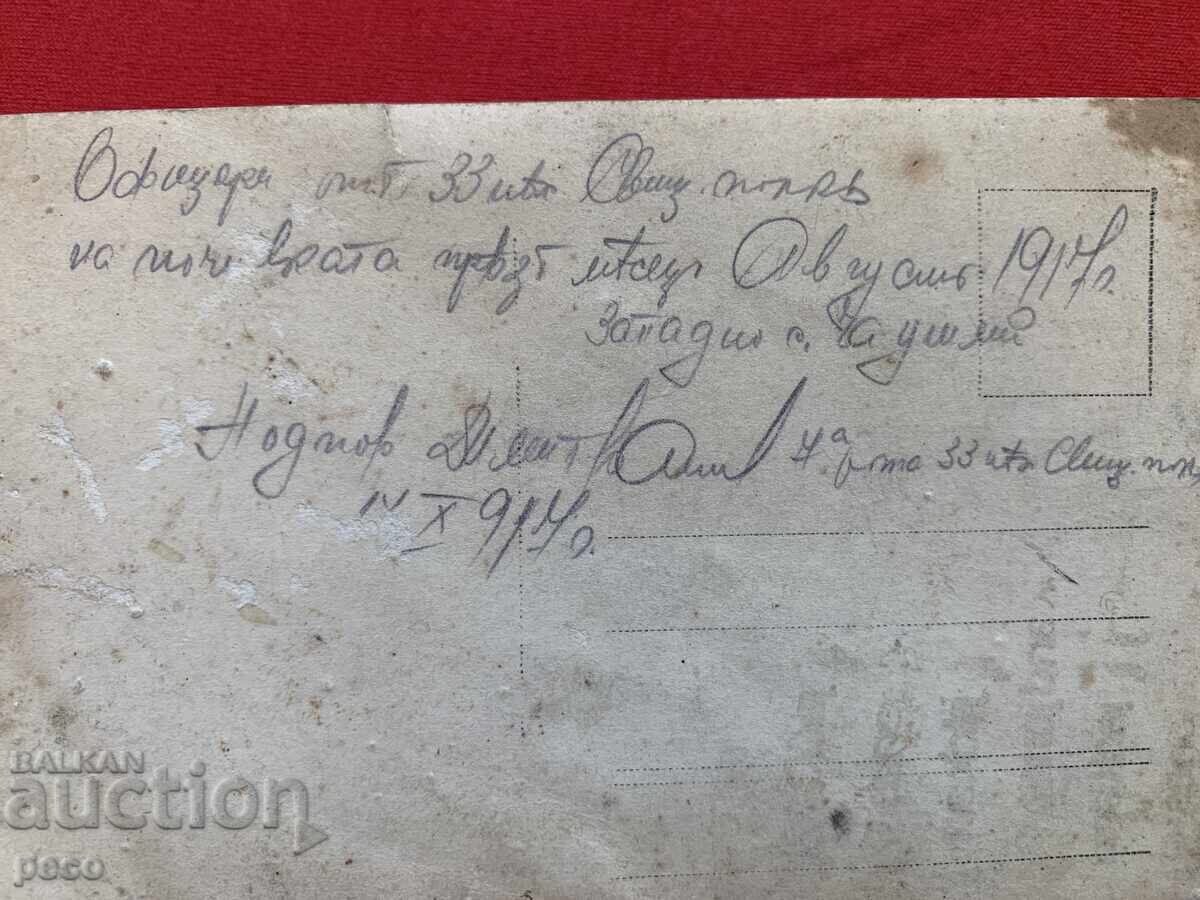 Офицери отъ 33 пѣх. Свищ. полкъ
на почивката прѣзъ месецъ Августъ 1917 г.
Западно с. Чаушли
Подпор. 7а рота 33 пѣх. Свищ. полк
IV X 917 г.
BALKAN
auction
peco